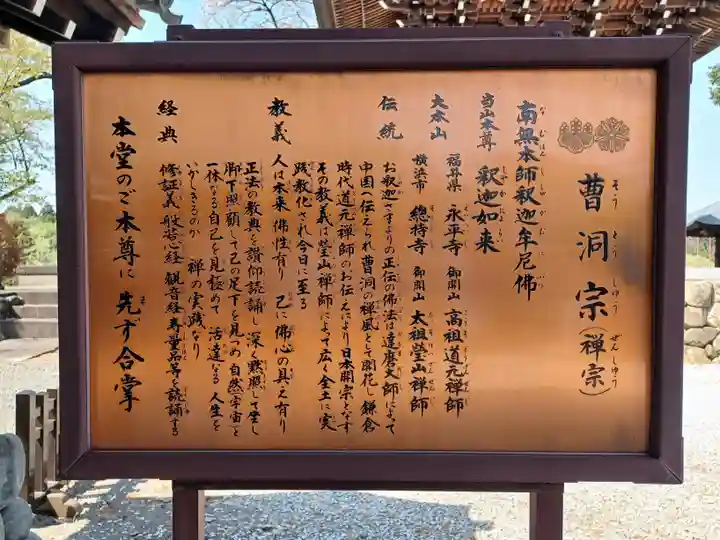 曹洞宗(禅宗)
そうとうしゅう ぜんしゅう
南無本師釈迦牟尼佛
なむほんししゃかむにぶつ
当山本尊 釈迦如来
大本山 福井県 永平寺 御開山 高祖道元禅師
横浜市 總持寺 御開山 太祖瑩山禅師
伝統 お釈迦さまよりの正伝の佛法は達磨大師によって
中国へ伝えられ曹洞の禅風として開花し鎌倉
時代道元禅師のお伝えにより日本開宗となす
その教義は瑩山禅師によって広く全土に実
践教化され今日に至る
教義 人は本来佛性有り 己に佛心の具え有り
正法の教典を讃仰読誦し深く黙照して坐し
脚下照顧して己の足下を見つめ自然(宇宙)と
一体なる自己を見極めて 活達なる人生を
いかしきるのが 禅の実践なり
経典 修証義 般若心経 観音経 寿量品等を読誦する
本堂のご本尊に先ず合掌